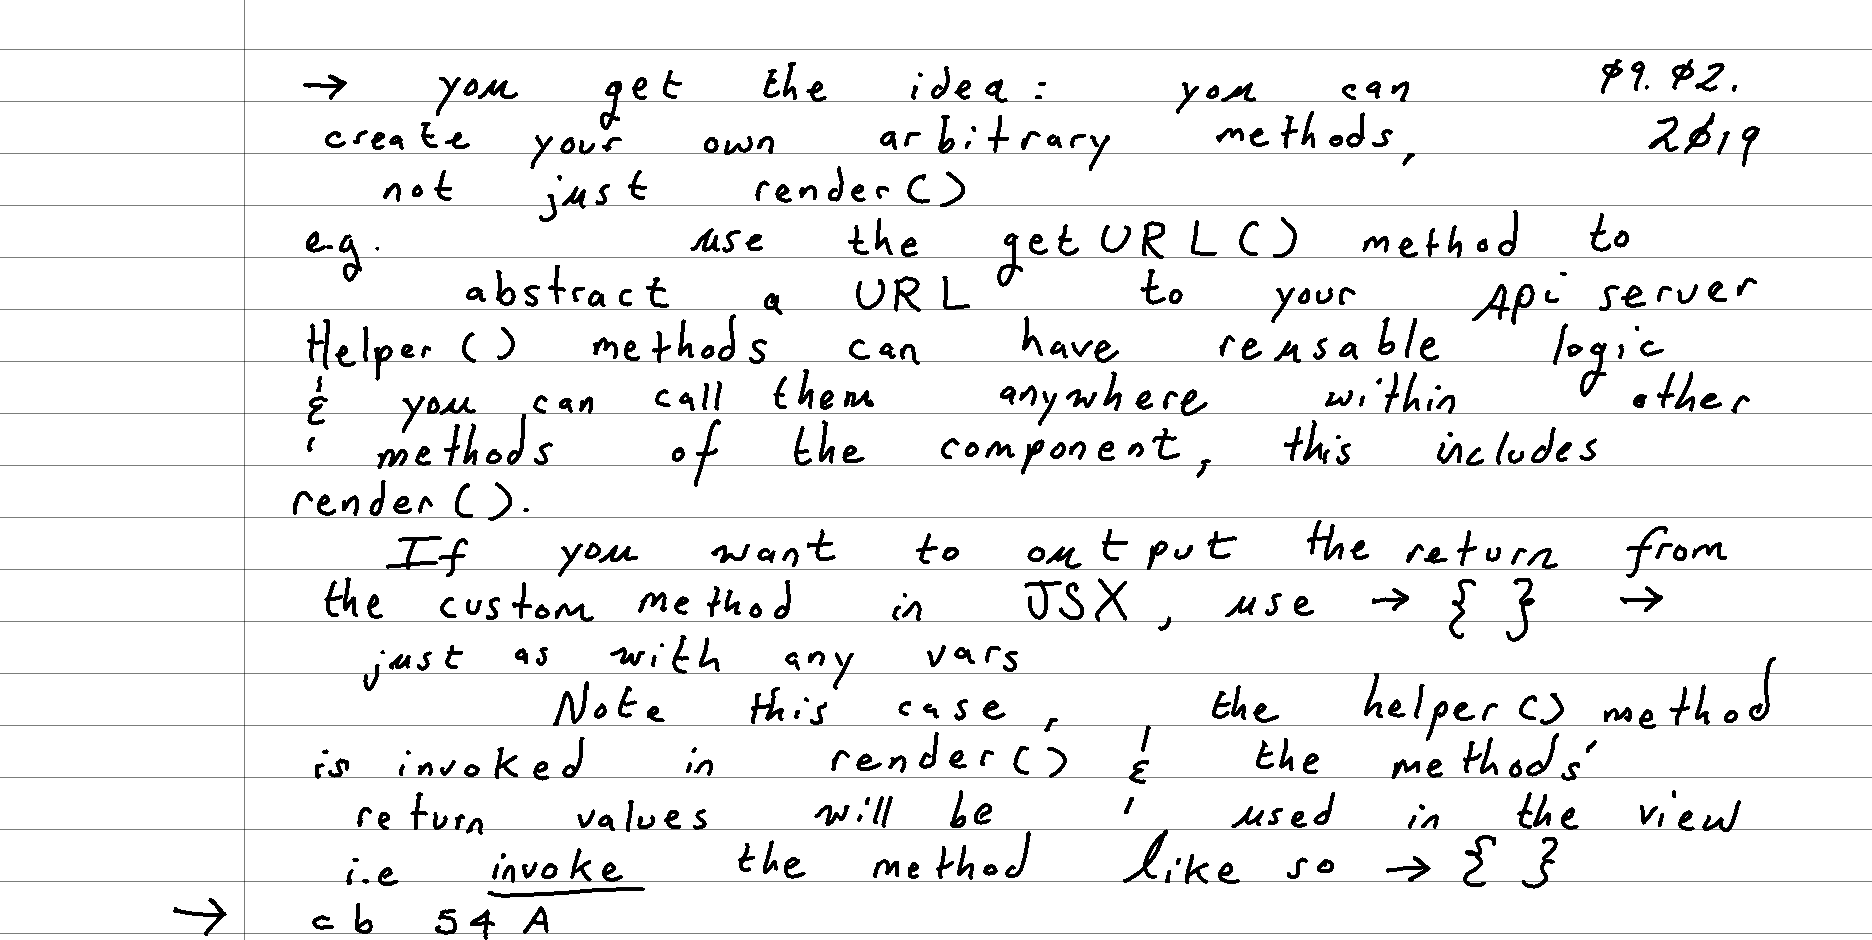 → you get the idea: you can ø9. ø2.
create your own arbitrary methods, 2ø19
not just render()
e.g. use the getURL() method to
abstract a URL to your Api server
Helper() methods can have reusable logic
& you can call them anywhere within other
methods of the component, this includes
render().
If you want to output the return from
the custom method in JSX, use → { } →
just as with any vars
Note this case, the helper() method
is invoked in render() & the methods'
return values will be used in the view
i.e invoke the method like so → { }
→ cb 54 A